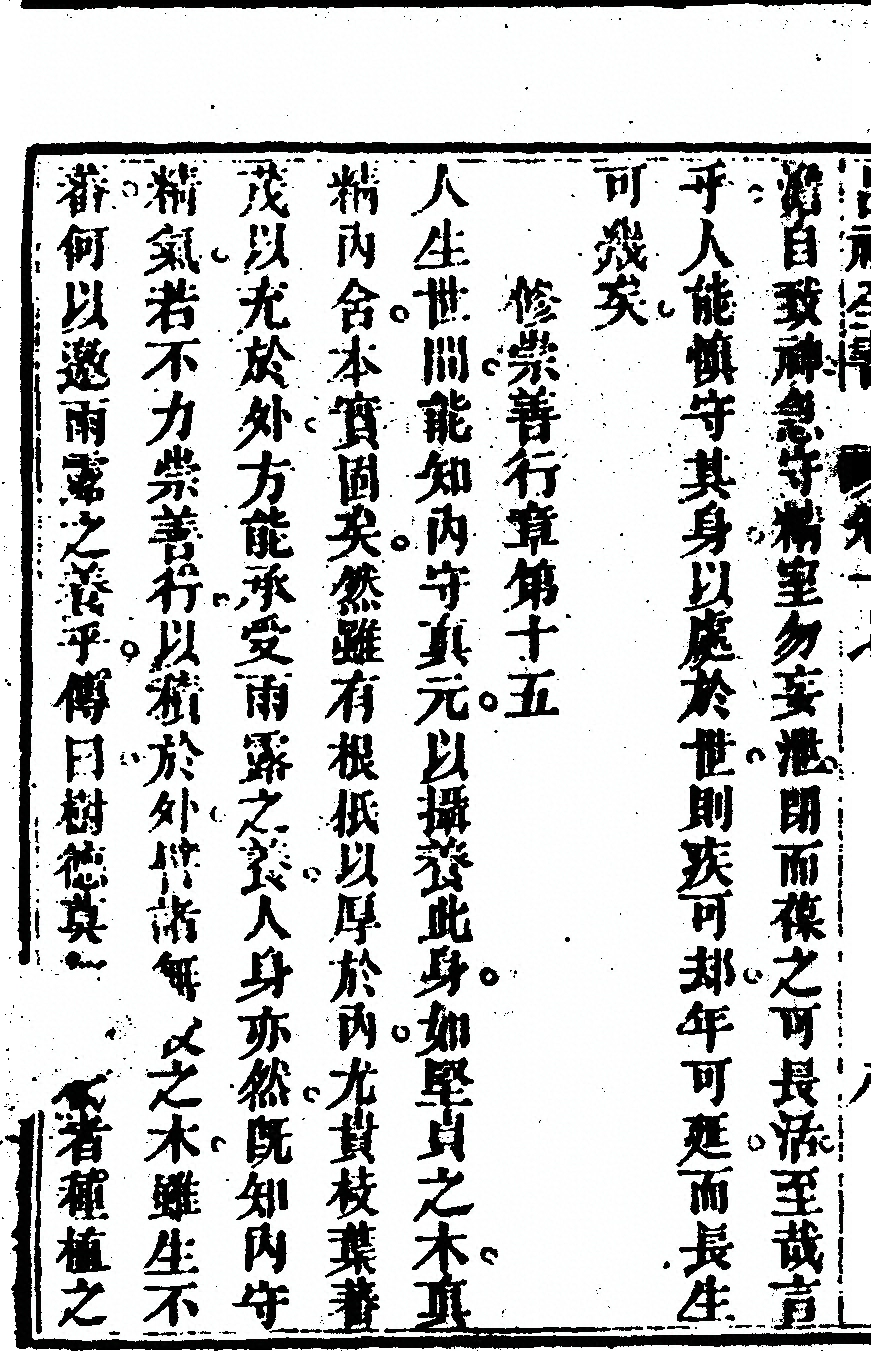 自致神急守精室勿妄泄閉而葆之可長活至哉言
乎人能慎守其身以處於世則疾可却年可延而長生
可幾矣
修崇善行章第十五
人生世間能知內守真元以攝養此身如堅貞之木真
精內含本實固矣然雖有根柢以厚於內尤貴枝葉蕃
茂以充於外方能承受雨露之養人身亦然既知內守
精氣若不力崇善行以積於外譬諸無之木雖生不
蕃何以邀雨露之養乎傳曰樹德莫者種植之